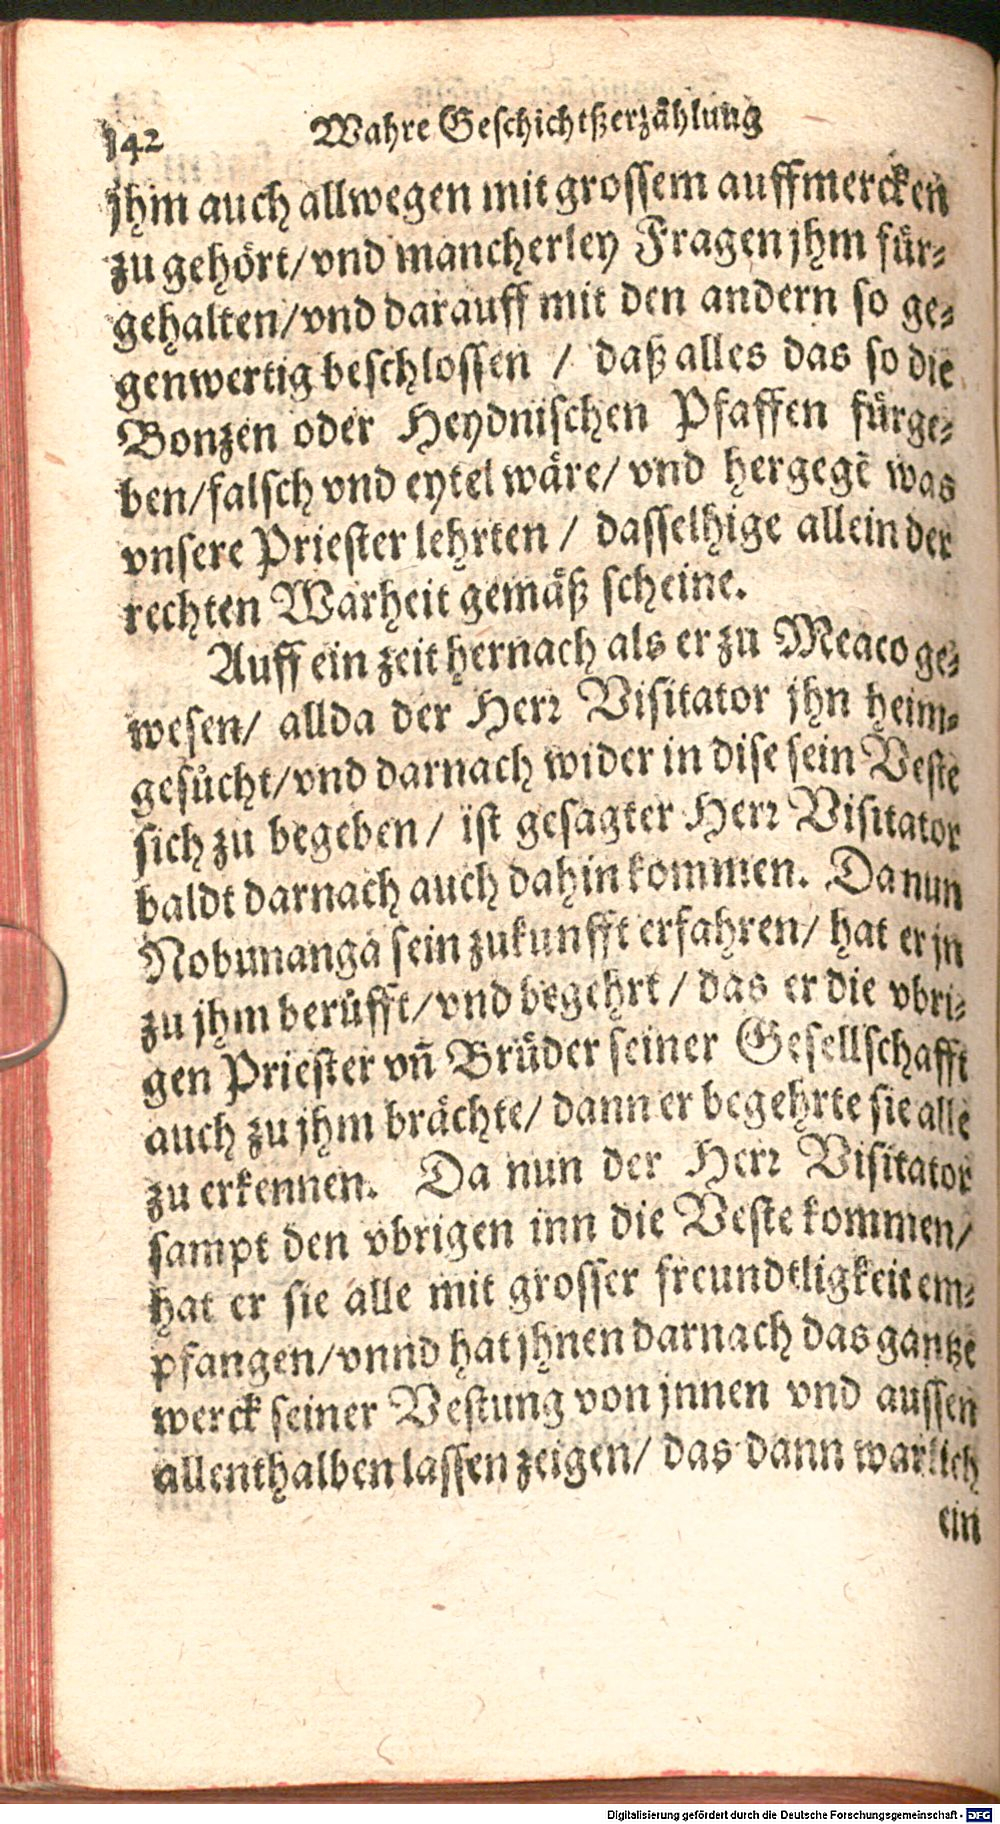 142 Wahre Geschichtßerzählung
jhm auch allwegen mit grossem auffmercken
zu gehört/vnd mancherley Fragen jhm für-
gehalten/vnd darauff mit den andern so ge-
genwertig beschlossen / daß alles das so die
Bonzen oder Heydnischen Pfaffen fürge-
ben/falsch vnd eytel wäre/ vnd hergegē was
vnsere Priester lehrten / dasselhige allein der
rechten Warheit gemäß scheine.
Auff ein zeit hernach als er zu Meaco ge-
wesen/ allda der Herr Visitator jhn heim-
gesůcht/vnd darnach wider in dise sein Veste
sich zu begeben/ ist gesagter Herr Visitator
baldt darnach auch dahin kommen. Da nun
Nobunanga sein zukunfft erfahren/ hat er jn
zu jhm berůfft/vnd begehrt / das er die vbri-
gen Priester vñ Brüder seiner Gesellschafft
auch zu jhm brächte/ dann er begehrte sie alle
zu erkennen. Da nun der Herr Visitator
sampt den vbrigen inn die Veste kommen/
hat er sie alle mit grosser freundtligkeit em-
pfangen/vnnd hat jhnen darnach das gantze
werck seiner Vestung von jnnen vnd aussen
allenthalben lassen zeigen/ das dann warlich
ein
Digitalisierung gefördert durch die Deutsche Forschungsgemeinschaft - DFG